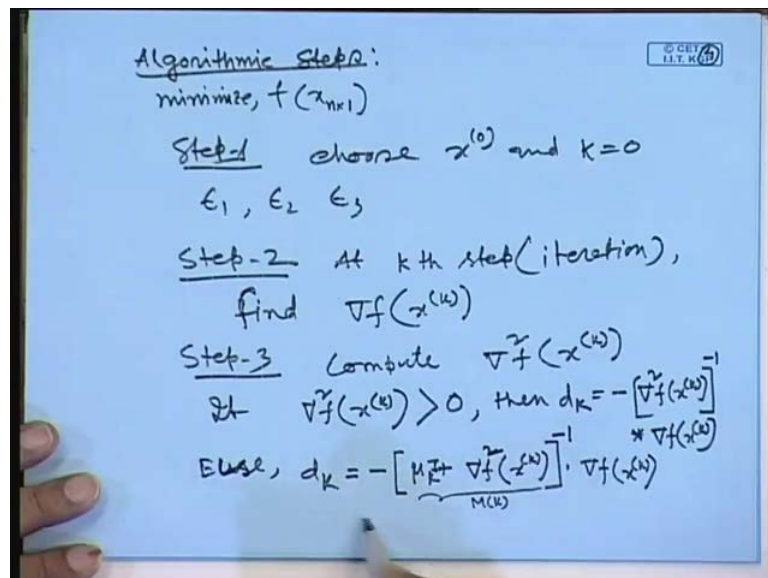 Algorithmic Steps:
© CET
I.I.T. KGP
minimize, f(x_{n×1})
Step-1 choose x^{(0)} and k=0
ϵ_1, ϵ_2 ϵ_3
Step-2 At k th step(iteration),
find ∇f(x^{(k)})
Step-3 Compute ∇²f(x^{(k)})
If ∇²f(x^{(k)}) > 0, then d_k = -[∇²f(x^{(k)})]^{-1}
* ∇f(x^{(k)})
Else, d_k = -[μ_k I + ∇²f(x^{(k)})]^{-1} · ∇f(x^{(k)})
M(k)